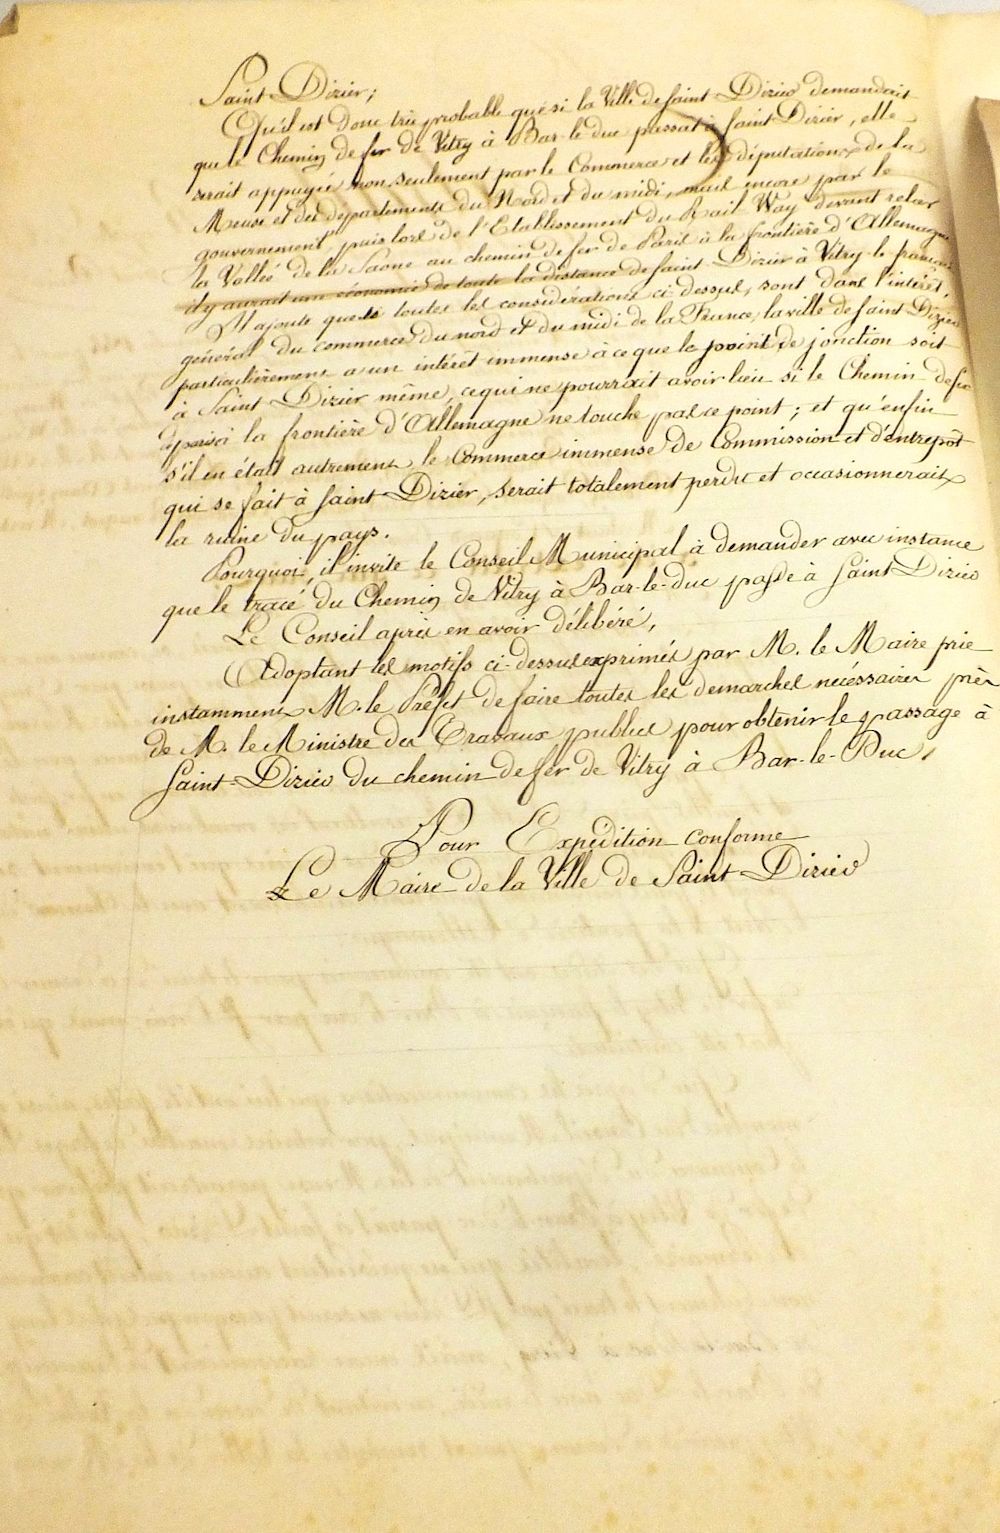 Saint-Dizier;
Qu'il est donc très probable que si la Ville de Saint-Dizier demandait
que le Chemin de fer de Vitry à Bar-le-duc passat à Saint Dizier, elle
serait appuyée non seulement par le Commerce et les députations de la
Meuse et des départements du Nord et du midi, mais encore par le
gouvernement, puis lors de l'Etablissement du Rail-Way devant relier
la Vallée de la Saone au chemin de fer de Paris à la frontière d'Allemagne
il y aurait une économie de toute la distance de Saint-Dizier à Vitry-le français
Il ajoute que si toutes les considérations ci dessus, sont dans l'intérêt,
général du commerce du nord et du midi de la France, la ville de Saint Dizier
particulièrement a un intérêt immense à ce que le point de jonction soit
à Saint-Dizier même, ce qui ne pourrait avoir lieu si le Chemin de fer
la frontière d'Allemagne ne touche pas ce point; et qu'enfin
s'il en était autrement le Commerce immense de Commission et d'entrepôt
qui se fait à Saint-Dizier, serait totalement perdu et occasionnerait
la ruine du pays.
Pourquoi, il invite le Conseil Municipal à demander avec instance
que le tracé du Chemin de Vitry à Bar-le-duc passe à Saint Dizier
Le Conseil après en avoir délibéré,
Adoptant les motifs ci-dessus exprimés par M. le Maire prie
instamment M. le Préfet de faire toutes les demarches nécéssaires près
de M. le Ministre des Travaux publics pour obtenir le passage à
Saint-Dizier du chemin de fer de Vitry à Bar-le-Duc,
Pour Expédition conforme
Le Maire de la Ville de Saint-Dizier